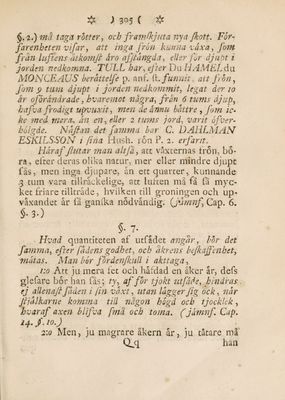 ☼ ) 305 ( ☼
§. 2.) må taga rötter, och framskjuta nya skott. För-
farenheten visar, att inga frön kunna växa, som
från luftens åtkomst äro afstängda, eller för djupt i
jorden nedkomma. TULL har, efter DU HAMEL du
MONCEAUS berättelse p. anf. st. funnit, att frön,
som 9 tum djupt i jorden nedkommit, legat der 10
år oförändrade, hvaremot några, från 6 tums djup,
hafva frodigt upvuxit, men de ännu bättre, som ic-
ke med mera, än en, eller 2 tums jord, varit öfver-
hölgde. Nästan det samma har C. DAHLMAN
ESKILSSON i sina Hush. rön P. 2. erfarit.
Häraf slutar man altså, att växternas frön, bö-
ra, efter deras olika natur, mer eller mindre djupt
sås, men inga djupare, än ett quarter, kunnande
3 tum vara tillräckelige, att luften må få så myc-
ket friare tillträde, hvilken till groningen och up-
växandet är så ganska nödvändig. (jämnf. Cap. 6.
§. 3.)
§. 7.
Hvad quantiteten af utsädet angör, bör det
samma, efter sädens godhet, och åkrens beskaffenhet,
mätas. Man bör fördenskull i akttaga,
1:o Att ju mera fet och häfdad en åker är, dess
glesare bör han sås; ty, af för tjokt utsäde, hindras
ej allenast säden i sin växt, utan lägger sig ock, när
stjälkarne komma till någon högd och tjocklek,
hvaraf axen blifva små och toma. (jämnf. Cap.
14. §. 10.)
2:o Men, ju magrare åkern är, ju tätare må
Qq han